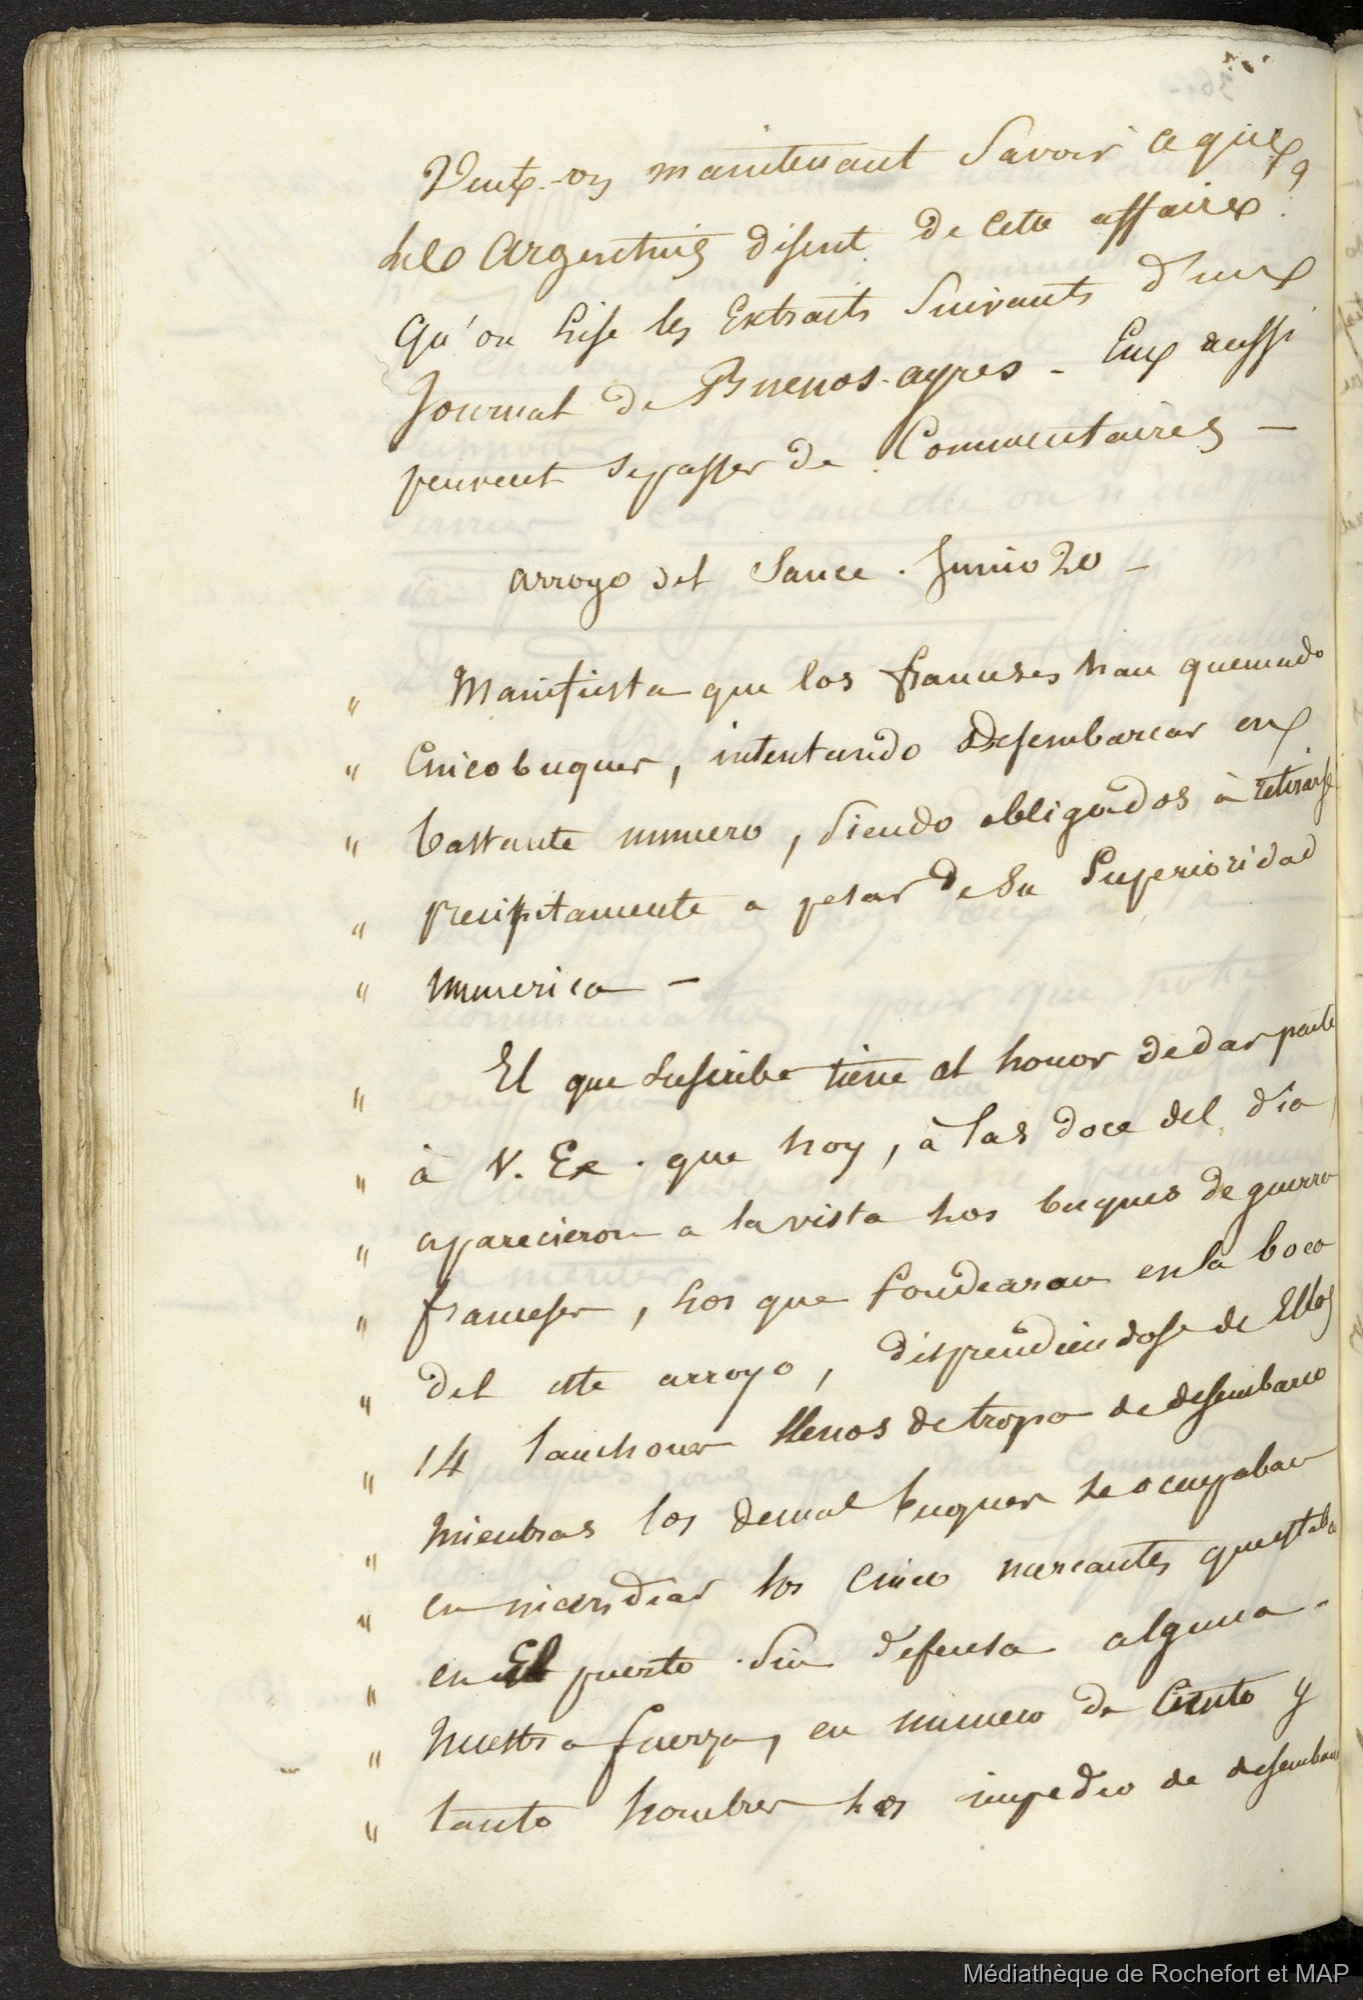 Veut-on maintenant savoir ce que
les Argentins disent de cette affaire?
Qu'on lise les Extraits suivants d'un
Journal de Buenos-ayres - Eux aussi
peuvent se passer de Commentaires -
arroyo del Sauce . Junio 20 -
" Manifiesta que los franceses han quemado
" Cinco buques, intentando desembarcar en
" bastante numero, siendo obligados à retirarse
" precipitamente a pesar de su Superioridad
" numerica -
" El que suscribe tiene el honor de dar parte
" à V. Ex. que hoy, à las doce del dia
" aparecieron a la vista los buques de guerra
" franceses, los que fondearon en la boca
" del este arroyo, disprendiendose de Ellos
" 14 lanchones llenos de tropa de desembarco
" mientras los demas buques se ocupaban
" en incendiar los cinco mercantes que estaba
" en El puerto sin defensa alguna.
" Nuestra fuerza, en numero de Ciento y
" tanto hombres los impedio de desembar
Médiathèque de Rochefort et MAP